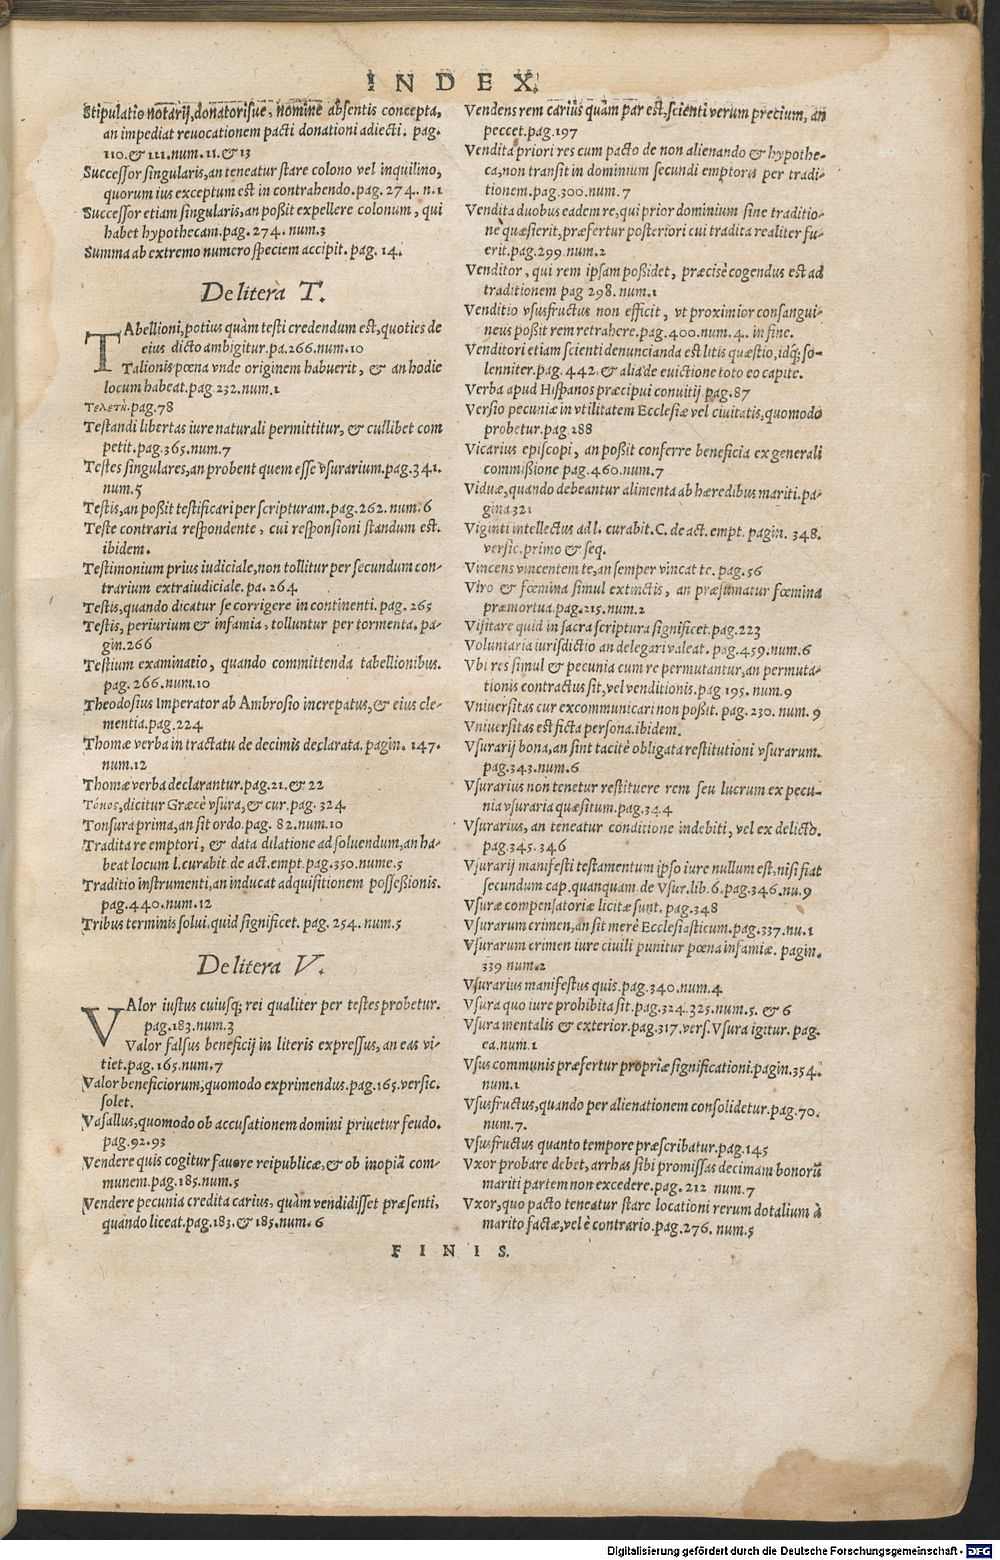 INDEX.
Stipulatio notarij, donatorisue, nomine absentis concepta,
an impediat reuocationem pacti donationi adiecti. pag.
110. & 111. num. 11. & 13
Successor singularis, an teneatur stare colono vel inquilino,
quorum ius exceptum est in contrahendo. pag. 274. n. 1
Successor etiam singularis, an poßit expellere colonum, qui
habet hypothecam. pag. 274. num. 3
Summa ab extremo numero speciem accipit. pag. 14.
De litera T.
TAbellioni, potius quàm testi credendum est, quoties de
eius dicto ambigitur. pa. 266. num. 10
Talionis pœna vnde originem habuerit, & an hodie
locum habeat. pag. 232. num. 1
Τελετὴ. pag. 78
Testandi libertas iure naturali permittitur, & cuilibet com
petit. pag. 365. num. 7
Testes singulares, an probent quem esse vsurarium. pag. 341.
num. 5
Testis, an poßit testificari per scripturam. pag. 262. num. 6
Teste contraria respondente, cui responsioni standum est.
ibidem.
Testimonium prius iudiciale, non tollitur per secundum con-
trarium extraiudiciale. pa. 264
Testis, quando dicatur se corrigere in continenti. pag. 265
Testis, periurium & infamia, tolluntur per tormenta. pa-
gin. 266
Testium examinatio, quando committenda tabellionibus.
pag. 266. num. 10
Theodosius Imperator ab Ambrosio increpatus, & eius cle-
mentia. pag. 224
Thomæ verba in tractatu de decimis declarata. pagin. 147.
num. 12
Thomæ verba declarantur. pag. 21. & 22
Τόκος, dicitur Græcè vsura, & cur. pag. 324.
Tonsura prima, an sit ordo. pag. 82. num. 10
Tradita re emptori, & data dilatione ad soluendum, an ha-
beat locum l. curabit. de act. empt. pag. 350. nume. 5
Traditio instrumenti, an inducat adquisitionem posseßionis.
pag. 440. num. 12
Tribus terminis solui, quid significet. pag. 254. num. 5
De litera V.
VAlor iustus cuiusq; rei qualiter per testes probetur.
pag. 183. num. 3
Valor falsus beneficij in literis expressus, an eas vi-
tiet. pag. 165. num. 7
Valor beneficiorum, quomodo exprimendus. pag. 165. versic.
solet.
Vasallus, quomodo ob accusationem domini priuetur feudo.
pag. 92. 93
Vendere quis cogitur fauore reipublicæ, & ob inopiã com-
munem. pag. 185. num. 5
Vendere pecunia credita carius, quàm vendidisset præsenti,
quando liceat. pag. 183. & 185. num. 6
Vendens rem cariùs quàm par est, scienti verum pretium, an
peccet. pag. 197
Vendita priori res cum pacto de non alienando & hypothe-
ca, non transit in dominium secundi emptoris per tradi-
tionem. pag. 300. num. 7
Vendita duobus eadem re, qui prior dominium sine traditio-
ne quæsierit, præfertur posteriori cui tradita realiter fu-
erit. pag. 299. num. 2
Venditor, qui rem ipsam poßidet, præcisè cogendus est ad
traditionem pag 298. num. 1
Venditio vsusfructus non efficit, vt proximior consangui-
neus poßit rem retrahere. pag. 400. num. 4. in fine.
Venditori etiam scienti denuncianda est litis quæstio, idq; so-
lenniter. pag. 442. & alia de euictione toto eo capite.
Verba apud Hispanos præcipui conuitij pag. 87
Versio pecuniæ in vtilitatem Ecclesiæ vel ciuitatis, quomodo
probetur. pag 288
Vicarius episcopi, an poßit conferre beneficia ex generali
commißione pag. 460. num. 7
Viduæ, quando debeantur alimenta ab hæredibus mariti. pa-
gina 321
Viginti intellectus ad l. curabit. C. de act. empt. pagin. 348.
versic. primo & seq.
Vincens vincentem te, an semper vincat te. pag. 56
Viro & fœmina simul extinctis, an præsumatur fœmina
præmortua. pag. 215. num. 2
Visitare quid in sacra scriptura significet. pag. 223
Voluntaria iurisdictio an delegari valeat. pag. 459. num. 6
Vbi res simul & pecunia cum re permutantur, an permuta-
tionis contractus sit, vel venditionis. pag 195. num. 9
Vniuersitas cur excommunicari non poßit. pag. 230. num. 9
Vniuersitas est ficta persona. ibidem.
Vsurarij bona, an sint tacitè obligata restitutioni vsurarum.
pag. 343. num. 6
Vsurarius non tenetur restituere rem seu lucrum ex pecu-
nia vsuraria quæsitum. pag. 344
Vsurarius, an teneatur conditione indebiti, vel ex delicto.
pag. 345. 346
Vsurarij manifesti testamentum ipso iure nullum est, nisi fiat
secundum cap. quanquam. de Vsur. lib. 6. pag. 346. nu. 9
Vsuræ compensatoriæ licitæ sunt. pag. 348
Vsurarum crimen, an sit merè Ecclesiasticum. pag. 337. nu. 1
Vsurarum crimen iure ciuili punitur pœna infamiæ. pagin.
339 num. 2
Vsurarius manifestus quis. pag. 340. num. 4
Vsura quo iure prohibita sit. pag. 324. 325. num. 5. & 6
Vsura mentalis & exterior. pag. 317. vers. Vsura igitur. pag.
ea. num. 1
Vsus communis præfertur propriæ significationi. pagin. 354.
num. 1
Vsusfructus, quando per alienationem consolidetur. pag. 70.
num. 7.
Vsusfructus quanto tempore præscribatur. pag. 145
Vxor probare debet, arrhas sibi promissas decimam bonorũ
mariti partem non excedere. pag. 212 num. 7
Vxor, quo pacto teneatur stare locationi rerum dotalium à
marito factæ, vel è contrario. pag. 276. num. 5
FINIS.
Digitalisierung gefördert durch die Deutsche Forschungsgemeinschaft - DFG